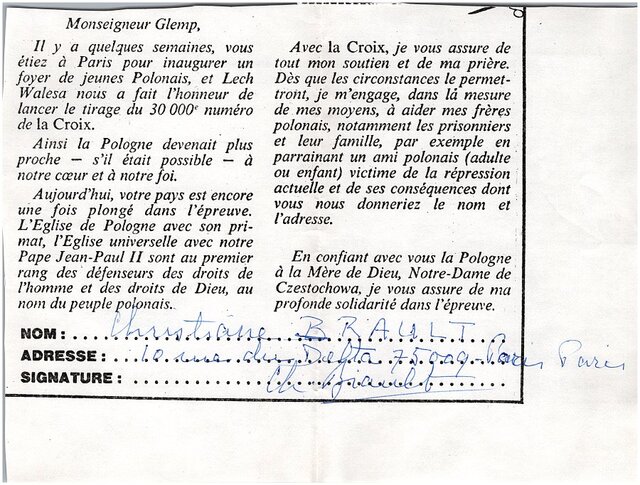 Monseigneur Glemp,
Il y a quelques semaines, vous
étiez à Paris pour inaugurer un
foyer de jeunes Polonais, et Lech
Walesa nous a fait l'honneur de
lancer le tirage du 30 000e numéro
de la Croix.
Ainsi la Pologne devenait plus
proche — s'il était possible — à
notre cœur et à notre foi.
Aujourd'hui, votre pays est encore
une fois plongé dans l'épreuve.
L'Eglise de Pologne avec son pri-
mat, l'Eglise universelle avec notre
Pape Jean-Paul II sont au premier
rang des défenseurs des droits de
l'homme et des droits de Dieu, au
nom du peuple polonais.
Avec la Croix, je vous assure de
tout mon soutien et de ma prière.
Dès que les circonstances le permet-
tront, je m'engage, dans la mesure
de mes moyens, à aider mes frères
polonais, notamment les prisonniers
et leur famille, par exemple en
parrainant un ami polonais (adulte
ou enfant) victime de la répression
actuelle et de ses conséquences dont
vous nous donneriez le nom et
l'adresse.
En confiant avec vous la Pologne
à la Mère de Dieu, Notre-Dame de
Czestochowa, je vous assure de ma
profonde solidarité dans l'épreuve.
NOM : Christiane BRAULT
ADRESSE : 10 rue du Delta 75009 Paris Paris
SIGNATURE : Ch Brault